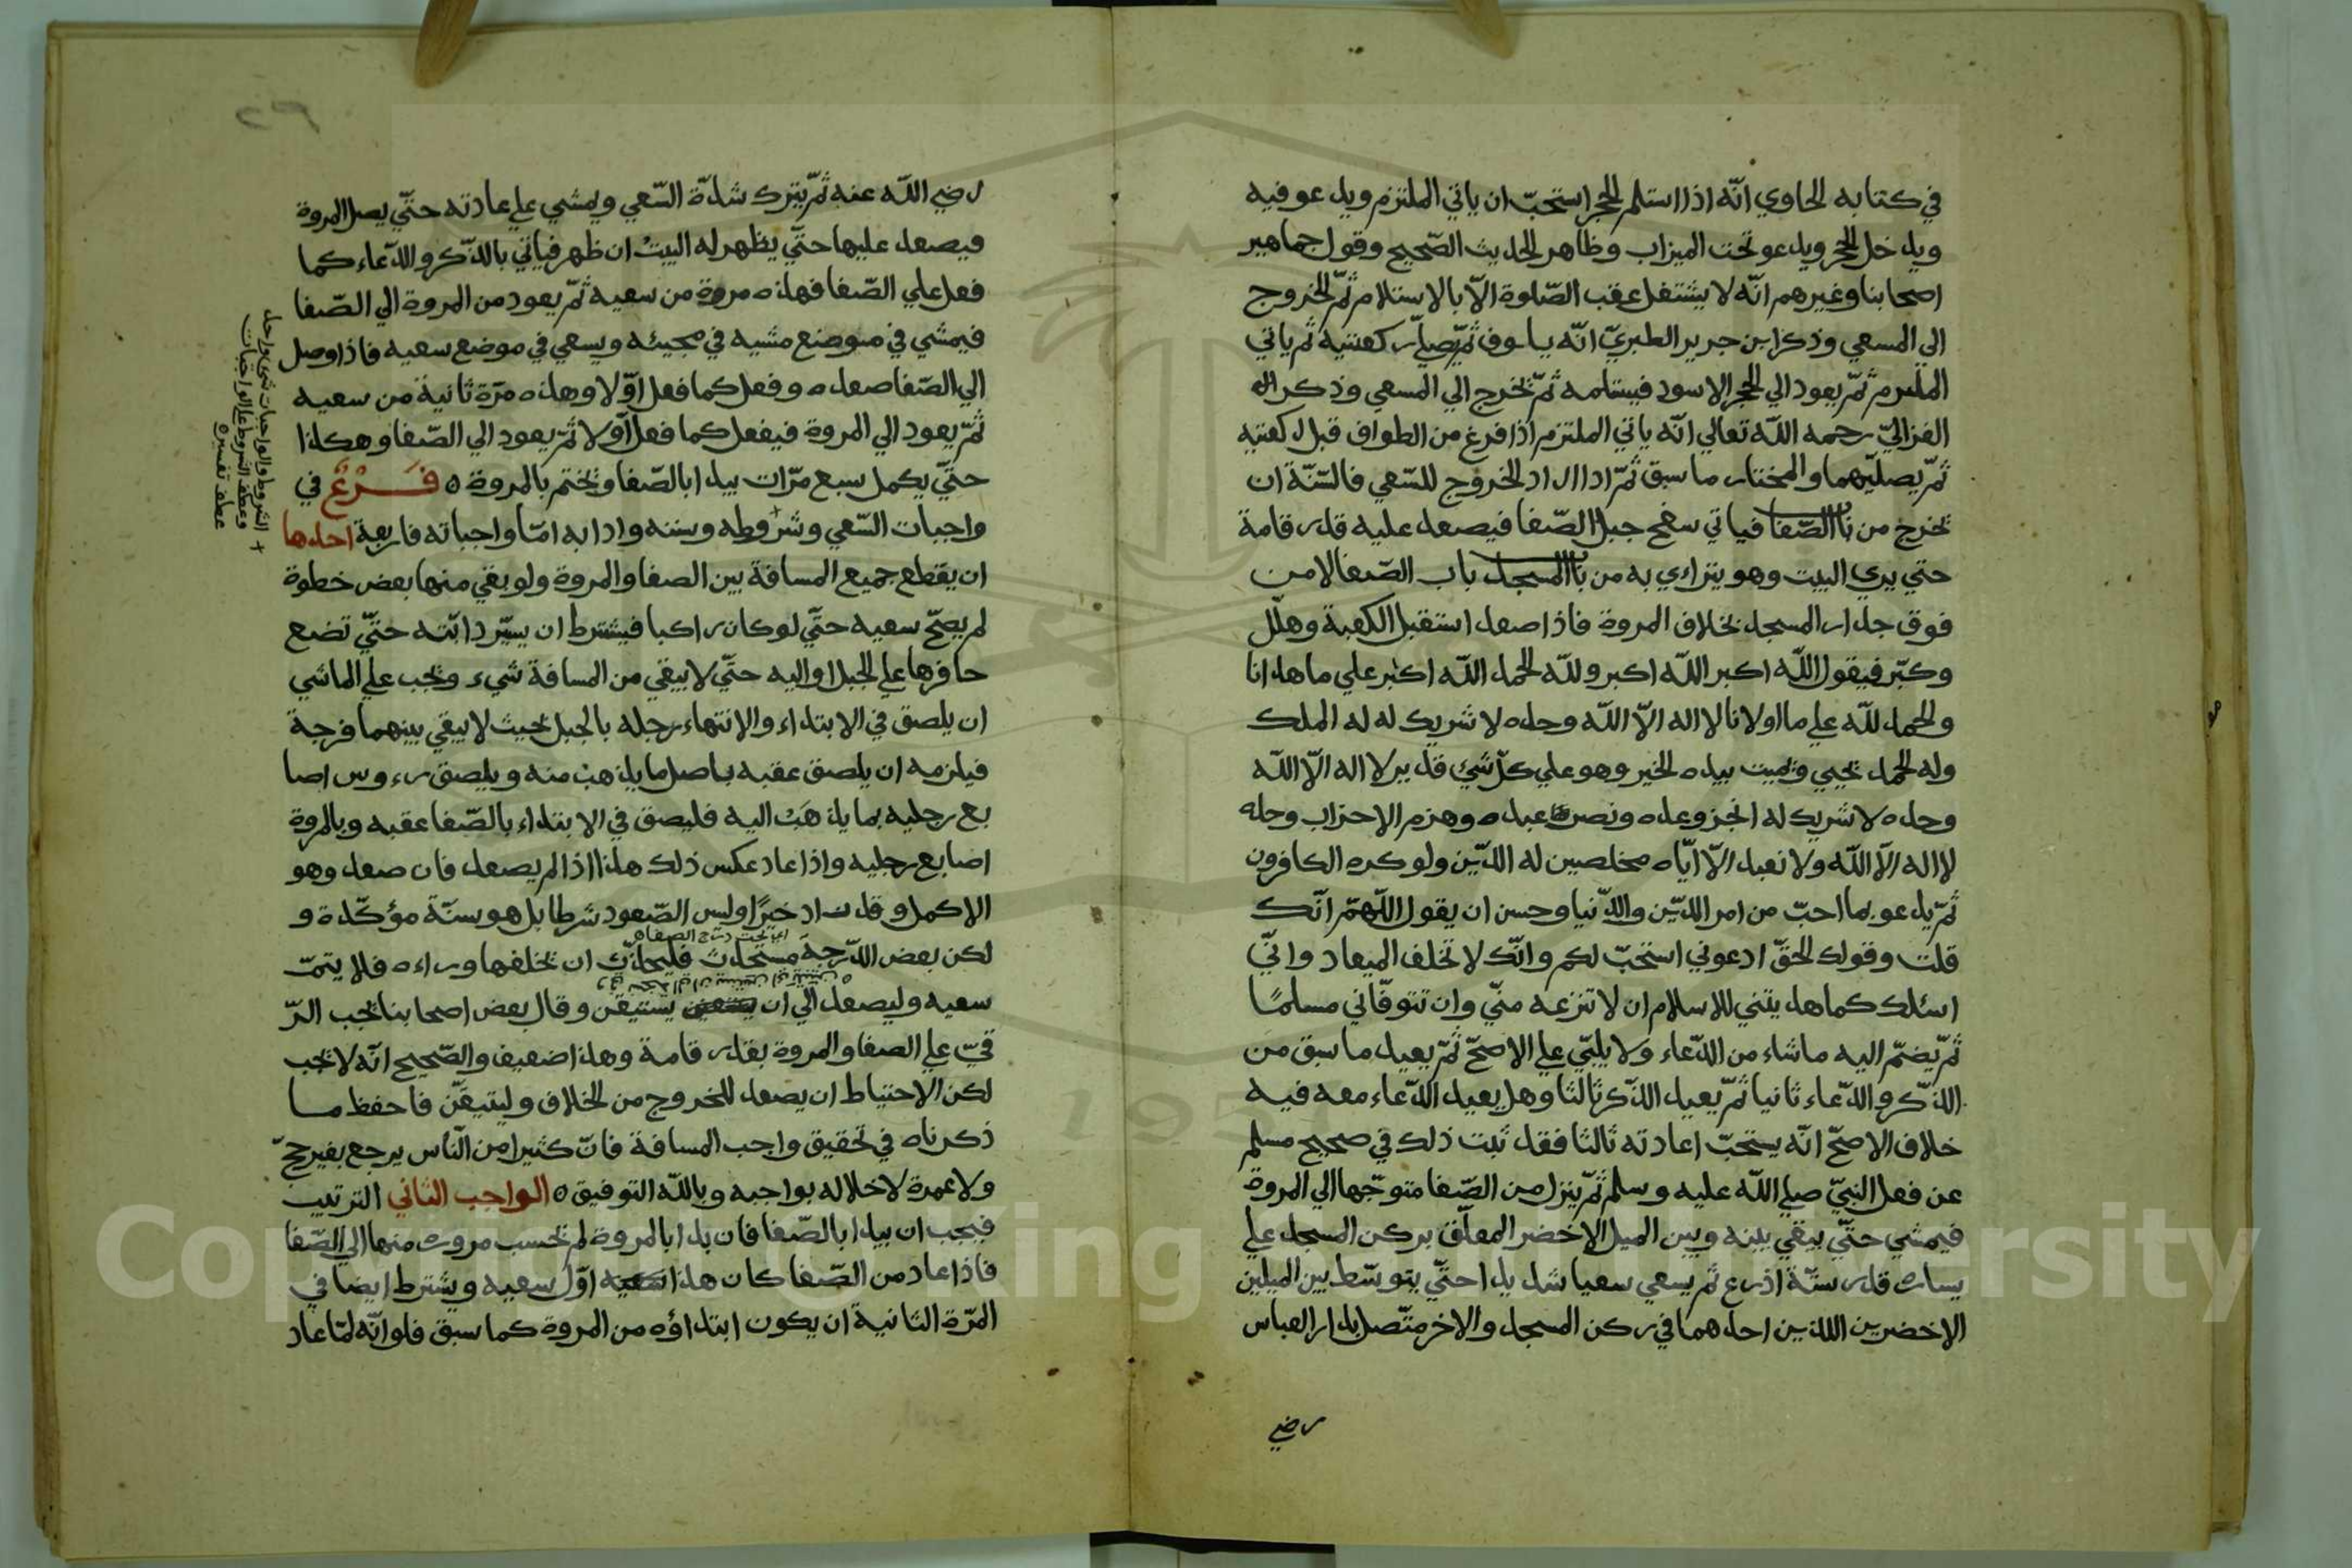 في كتابه الحاوي انّه اذا استلم الحجر استحبّ ان ياتي الملتزم ويدعو فيه
ويدخل الحجر ويدعو تحت الميزاب وظاهر الحديث الصّحيح وقول جماهير
اصحابنا وغيرهم انّه لا يشتغل عقب الصّلوة الّا بالاستلام ثمّ الخروج
الي المسعي وذكر ابن جرير الطبريّ انّه يطوف ثمّ يصلّي ركعتيه ثم ياتي
الملتزم ثمّ يعود الي الحجر الاسود فيستلمه ثمّ يخرج الي المسعي وذكر
الغزاليّ رحمه اللّه تعالي انّه ياتي الملتزم اذا فرغ من الطواف قبل ركعتيه
ثمّ يصلّيهما والمختار ما سبق ثمّ اذا اراد الخروج للسّعي فالسّنّة ان
يخرج من باب الصّفا فياتي سفح جبل الصّفا فيصعد عليه قدر قامة
حتي يري البيت وهو يتراءي به من باب المسجد باب الصّفا لا من
فوق جدار المسجد بخلاف المروة فاذا صعد استقبل الكعبة وهلّل
وكبّر فيقول اللّه اكبر اللّه اكبر وللّه الحمد اللّه اكبر علي ما هدانا
والحمد للّه علي ما اولانا لا اله الّا اللّه وحده لا شريك له له الملك
وله الحمد يحيي ويميت بيده الخير وهو علي كلّ شيئ قدير لا اله الّا اللّه
وحده لا شريك له انجز وعده ونصر عبده وهزم الاحزاب وحده
لا اله الّا اللّه ولا نعبد الّا ايّاه مخلصين له الدّين ولو كره الكافرون
ثمّ يدعو بما احبّ من امر الدّين والدّنيا وحسن ان يقول اللّهمّ انّك
قلت وقولك الحقّ ادعوني استجبّ لكم وانّك لا تخلف الميعاد وانّي
اسئلك كما هديتني للاسلام ان لا تنزعه منّي وان تتوفّاني مسلمًا
ثمّ يضمّ اليه ما شاء من الدّعاء ولا يلبّي علي الاصحّ ثمّ يعيد ما سبق من
الذّكر والدّعاء ثانيا ثمّ يعيد الذّكر ثالثا وهل يعيد الدّعاء معه فيه
خلاف الاصحّ انّه يستحبّ اعادته ثالثا فقد ثبت ذلك في صحيح مسلم
عن فعل النبيّ صلي اللّه عليه وسلم ثمّ ينزل من الصّفا متوجّها الي المروة
فيمشي حتّي يبقي بينه وبين الميل الاخضر المعلّق بركن المسجد علي
يساره قدر ستّة اذرع ثم يسعي سعيا شديدا حتّي يتوسّط بين الميلين
الاخضرين اللذين احدهما في ركن المسجد والاخر متّصل بدار العباس
رضي
رضي اللّه عنه ثمّ يترك شدّة السّعي ويمشي علي عادته حتّي يصل المروة
فيصعد عليها حتّي يظهر له البيت ان ظهر فياتي بالذّكر والدّعاء كما
فعل علي الصّفا فهذه مروة من سعيه ثمّ يعود من المروة الي الصّفا
فيمشي في موضع مشيه في مجيئه ويسعي في موضع سعيه فاذا وصل
الي الصّفا صعده وفعل كما فعل اوّلا وهذه مرّة ثانية من سعيه
ثمّ يعود الي المروة فيفعل كما فعل اوّلا ثمّ يعود الي الصّفا وهكذا
حتّي يكمل سبع مرّات يبدا بالصّفا ويختم بالمروة ه فَرْعٌ في
واجبات السّعي وشروطه وسننه وادابه امّا واجباته فاربعة احدها
ان يقطع جميع المسافة بين الصفا والمروة ولو بقي منها بعض خطوة
لم يصحّ سعيه حتّي لو كان راكبا فيشترط ان يسيّر دابّته حتّي تضع
حافرها علي الجبل او اليه حتّي لا يبقي من المسافة شيء ويجب علي الماشي
ان يلصق في الابتداء والانتهاء رجله بالجبل بحيث لا يبقي بينهما فرجة
فيلزمه ان يلصق عقبه باصل ما يذهب منه ويلصق رءوس اصا
بع رجليه بما يذهَب اليه فليصق في الابتداء بالصّفا عقبه وبالمروة
اصابع رجليه واذا عاد عكس ذلك هذا اذا لم يصعد فان صعد وهو
الاكمل وقد زاد خيرًا وليس الصّعود شرطا بل هو سنّة مؤكّدة و
اي تحت درج الصفا ه
لكن بعض الدّرجة مستحدث فليحذّر ان يخلفها وراءه فلا يتمّ
سعيه وليصعد الي ان يستيقن وقال بعض اصحابنا يجب الرّ
قيّ علي الصفا والمروة بقدر قامة وهذا ضعيف والصّحيح انّه لا يجب
لكن الاحتياط ان يصعد للخروج من الخلاف وليتيقّن فاحفظ ما
ذكرناه في تحقيق واجب المسافة فانّ كثيرا من النّاس يرجع بغير حجّ
ولا عمرة لاخلاله بواجبه وباللّه التوفيق ه الواجب الثاني الترتيب
فيجب ان يبدا بالصّفا فان بدا بالمروة لم يحسب مروره منها الي الصّفا
فاذا عاد من الصّفا كان هذا اوّل سعيه ويشترط ايضا في
المرّة الثانية ان يكون ابتداؤه من المروة كما سبق فلو انّه لمّا عاد
+ الشروط والواجبات شيء واحد
وعطف الشروط علي الواجبات
عطف تفسير ه
Copyright © King Saud University
195